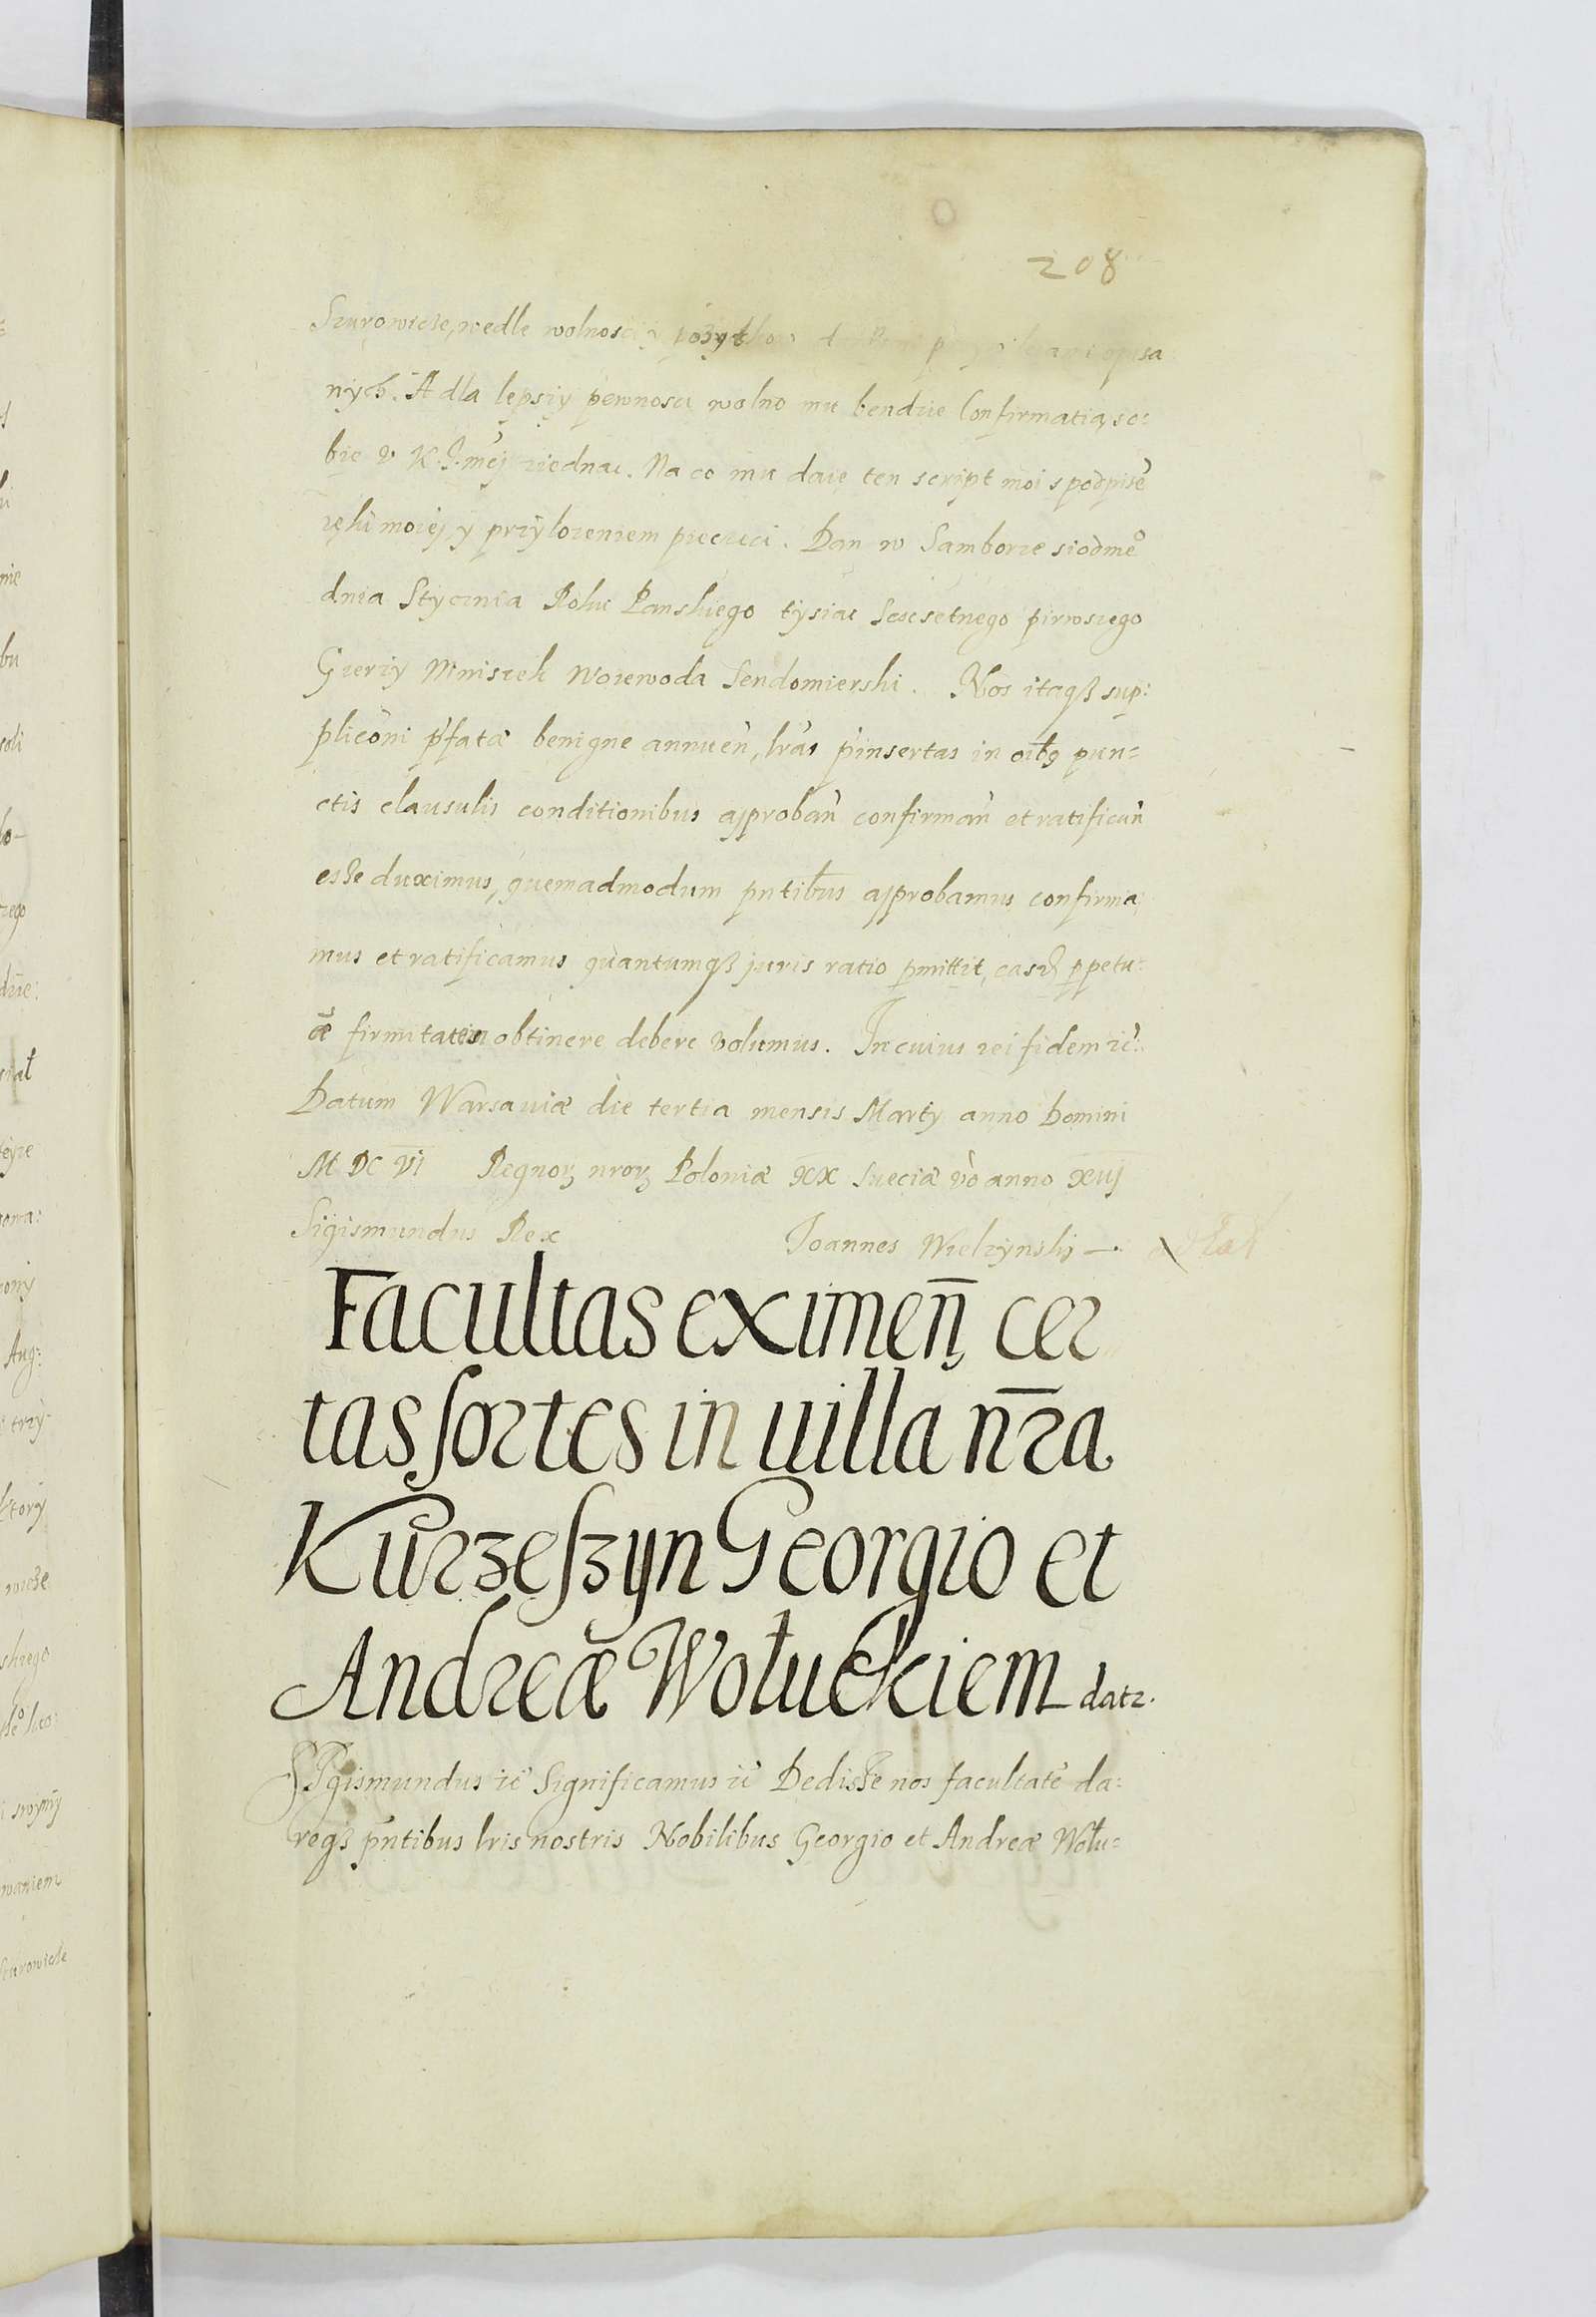 208
Szurowicze, wedle wolnosci y pozytkow
nych. A dla lepsiy pewnosci wolno mu bendzie Confirmatią so:
bie v K. J. mci ziednac. Na co mu daie ten script moi s podpisē
ręki moiej y przyłozeniem pieczeci. Dan w Samborze siodmeº
dnia Stycznia Roku Panskiego tysiac Sescsetnego pirwszego
Gierzy Mniszek Woiewoda Sendomierski. Nos itaqȝ sup:
plicōni p̄fatæ benigne annueñ, lrās p̄insertas in oībꝫ pun=
ctis clausulis conditionibus approbañ confirmañ et ratificañ
esse duximus, quemadmodum pntibus approbamus confirma
mus et ratificamus quantumqȝ juris ratio pmittit, casqȝ ppetu:
æ firmitatem obtinere debere volumus. In cuius rei fidem ꝛc̄.
Datum Warsauiæ die tertia mensis Martÿ anno Domini
M DC VI Regnoꝝ nroꝝ Poloniæ XX Sueciæ v̄o anno xiij
Sigismundus Rex Joannes Wielzynskj —.
Facultas eximeñ cer
tas sortes in uilla nr̄a
Kurzeszyn Georgio et
Andreæ Wołuckiem datr.
SIgismundus ꝛc̄ Significamus ꝛc̄ Dedisse nos facultatē da:
reqȝ pn̄tibus lris nostris Nobilibus Georgio et Andreæ Wołu=